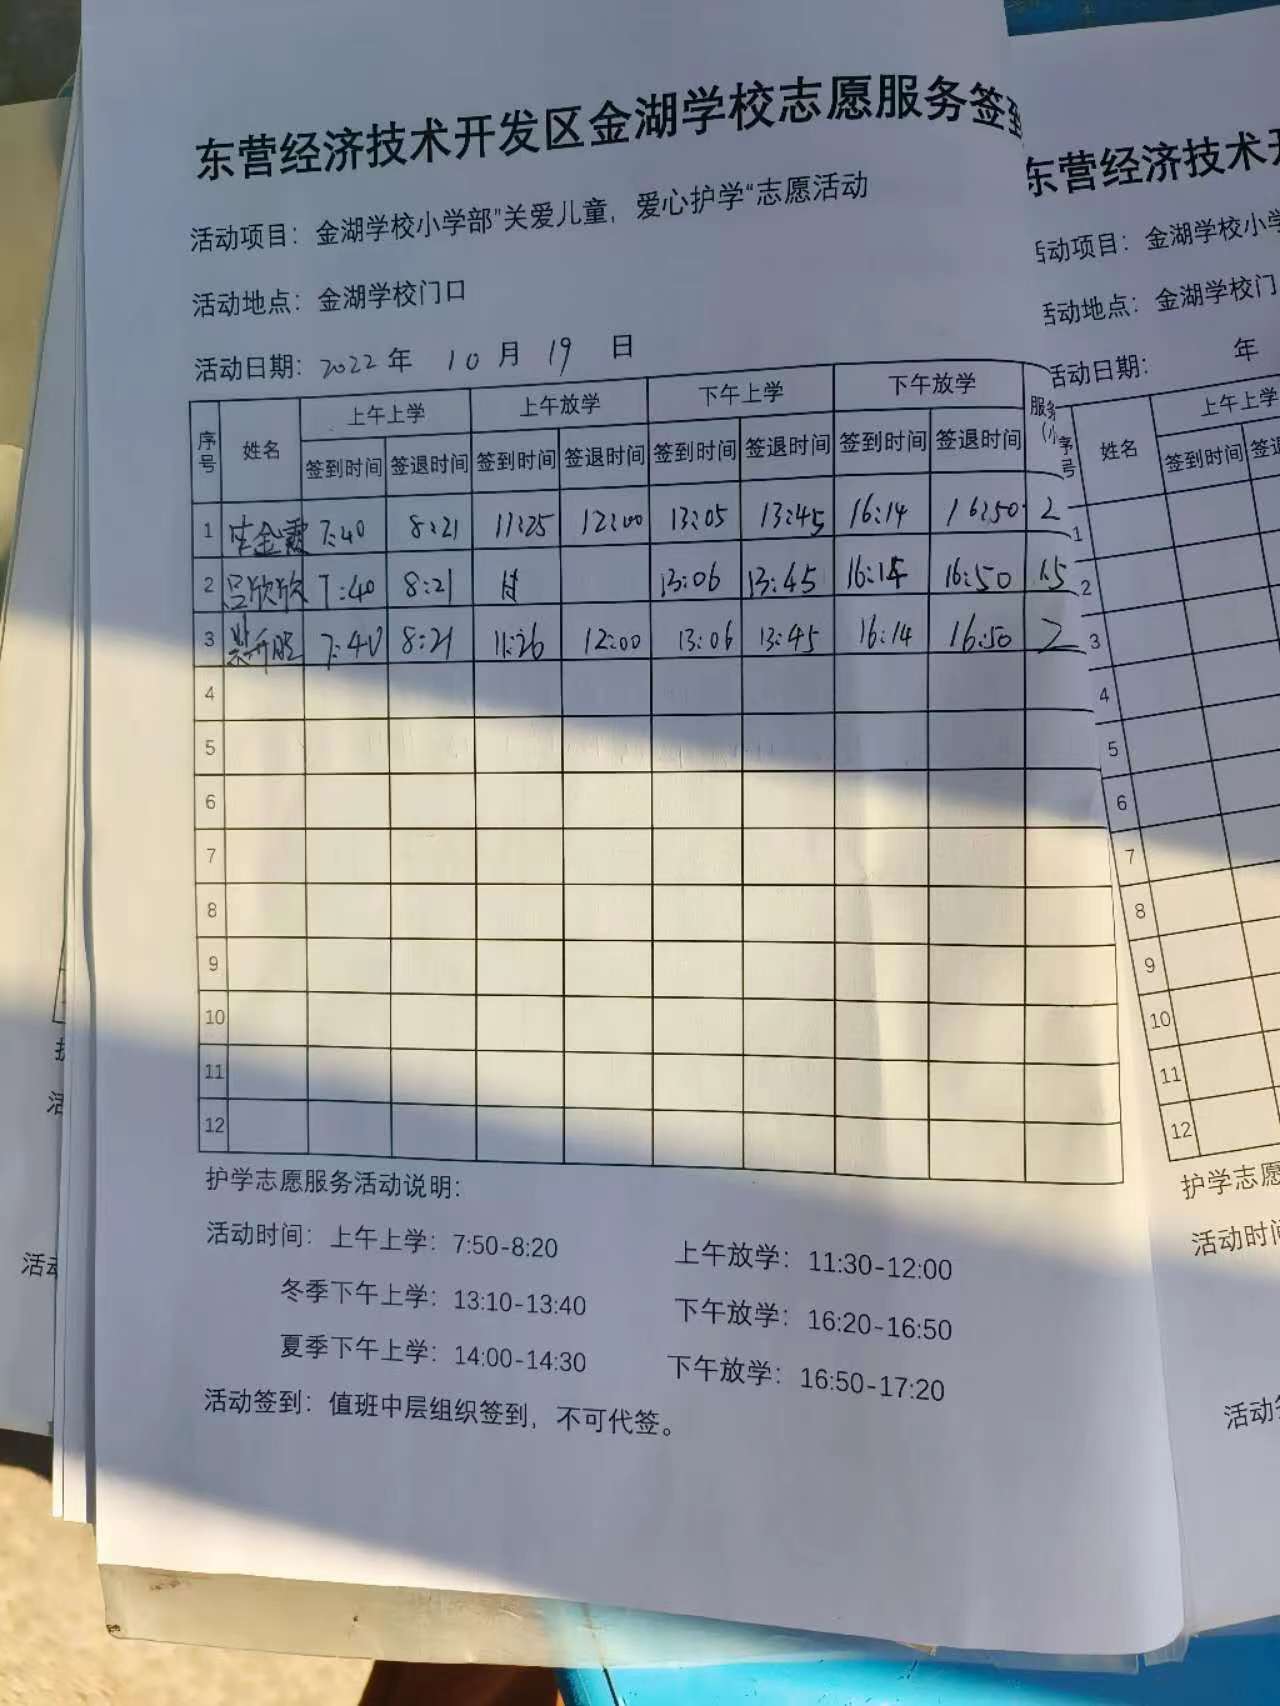 东营经济技术开发区金湖学校志愿服务签到
活动项目：金湖学校小学部"关爱儿童，爱心护学"志愿活动
活动地点：金湖学校门口
活动日期：2022年 10月 19 日
序号 姓名 上午上学 上午放学 下午上学 下午放学 服务
签到时间 签退时间 签到时间 签退时间 签到时间 签退时间 签到时间 签退时间
1 金霞 7:40 8:21 11:25 12:00 13:05 13:45 16:14 16:50 2
2 吕欣欣 7:40 8:21 13:06 13:45 16:15 16:50 1.5
3 7:40 8:21 11:26 12:00 13:06 13:45 16:14 16:50 2
4
5
6
7
8
9
10
11
12
护学志愿服务活动说明：
活动时间：上午上学：7:50-8:20 上午放学：11:30-12:00
冬季下午上学：13:10-13:40 下午放学：16:20-16:50
夏季下午上学：14:00-14:30 下午放学：16:50-17:20
活动签到：值班中层组织签到，不可代签。
东营经济技术开
活动项目：金湖学校小学
活动地点：金湖学校门
活动日期： 年
序号 姓名 上午上学
签到时间 签退
1
2
3
4
5
6
7
8
9
10
11
12
护学志愿
活动时间
活动签